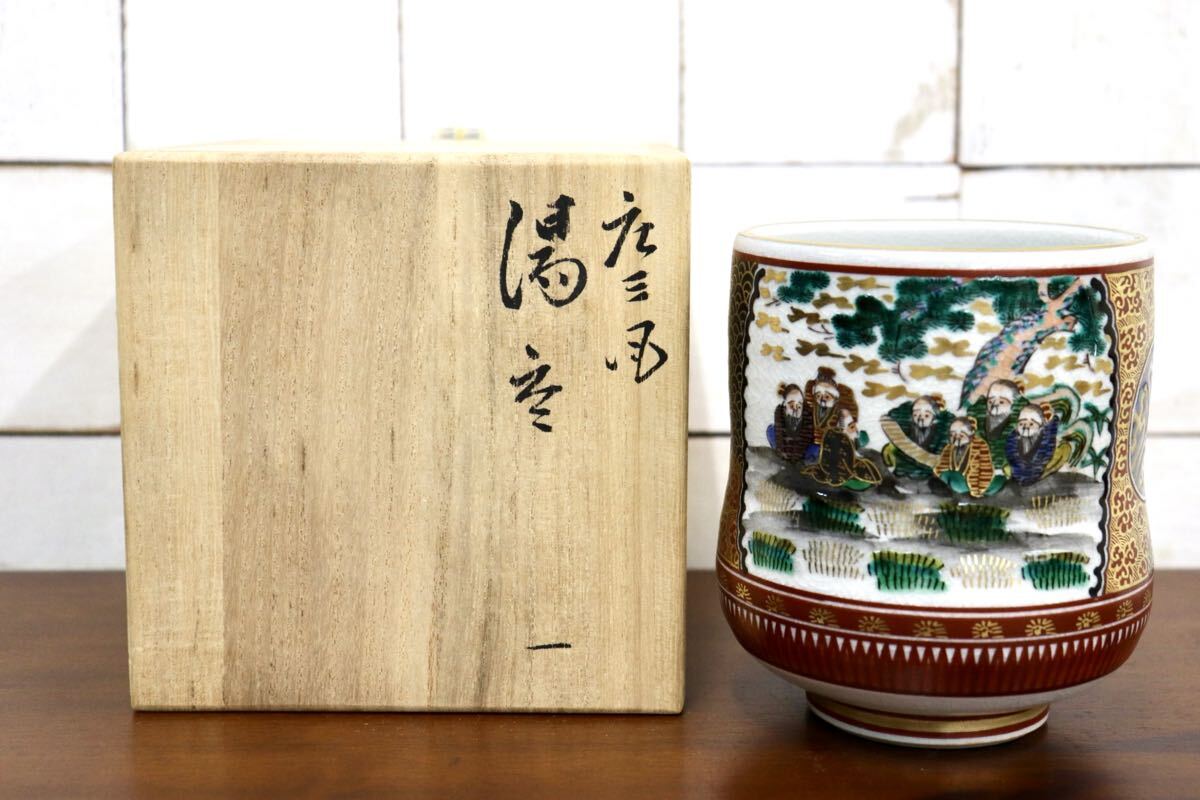 庄三風
湯呑
一